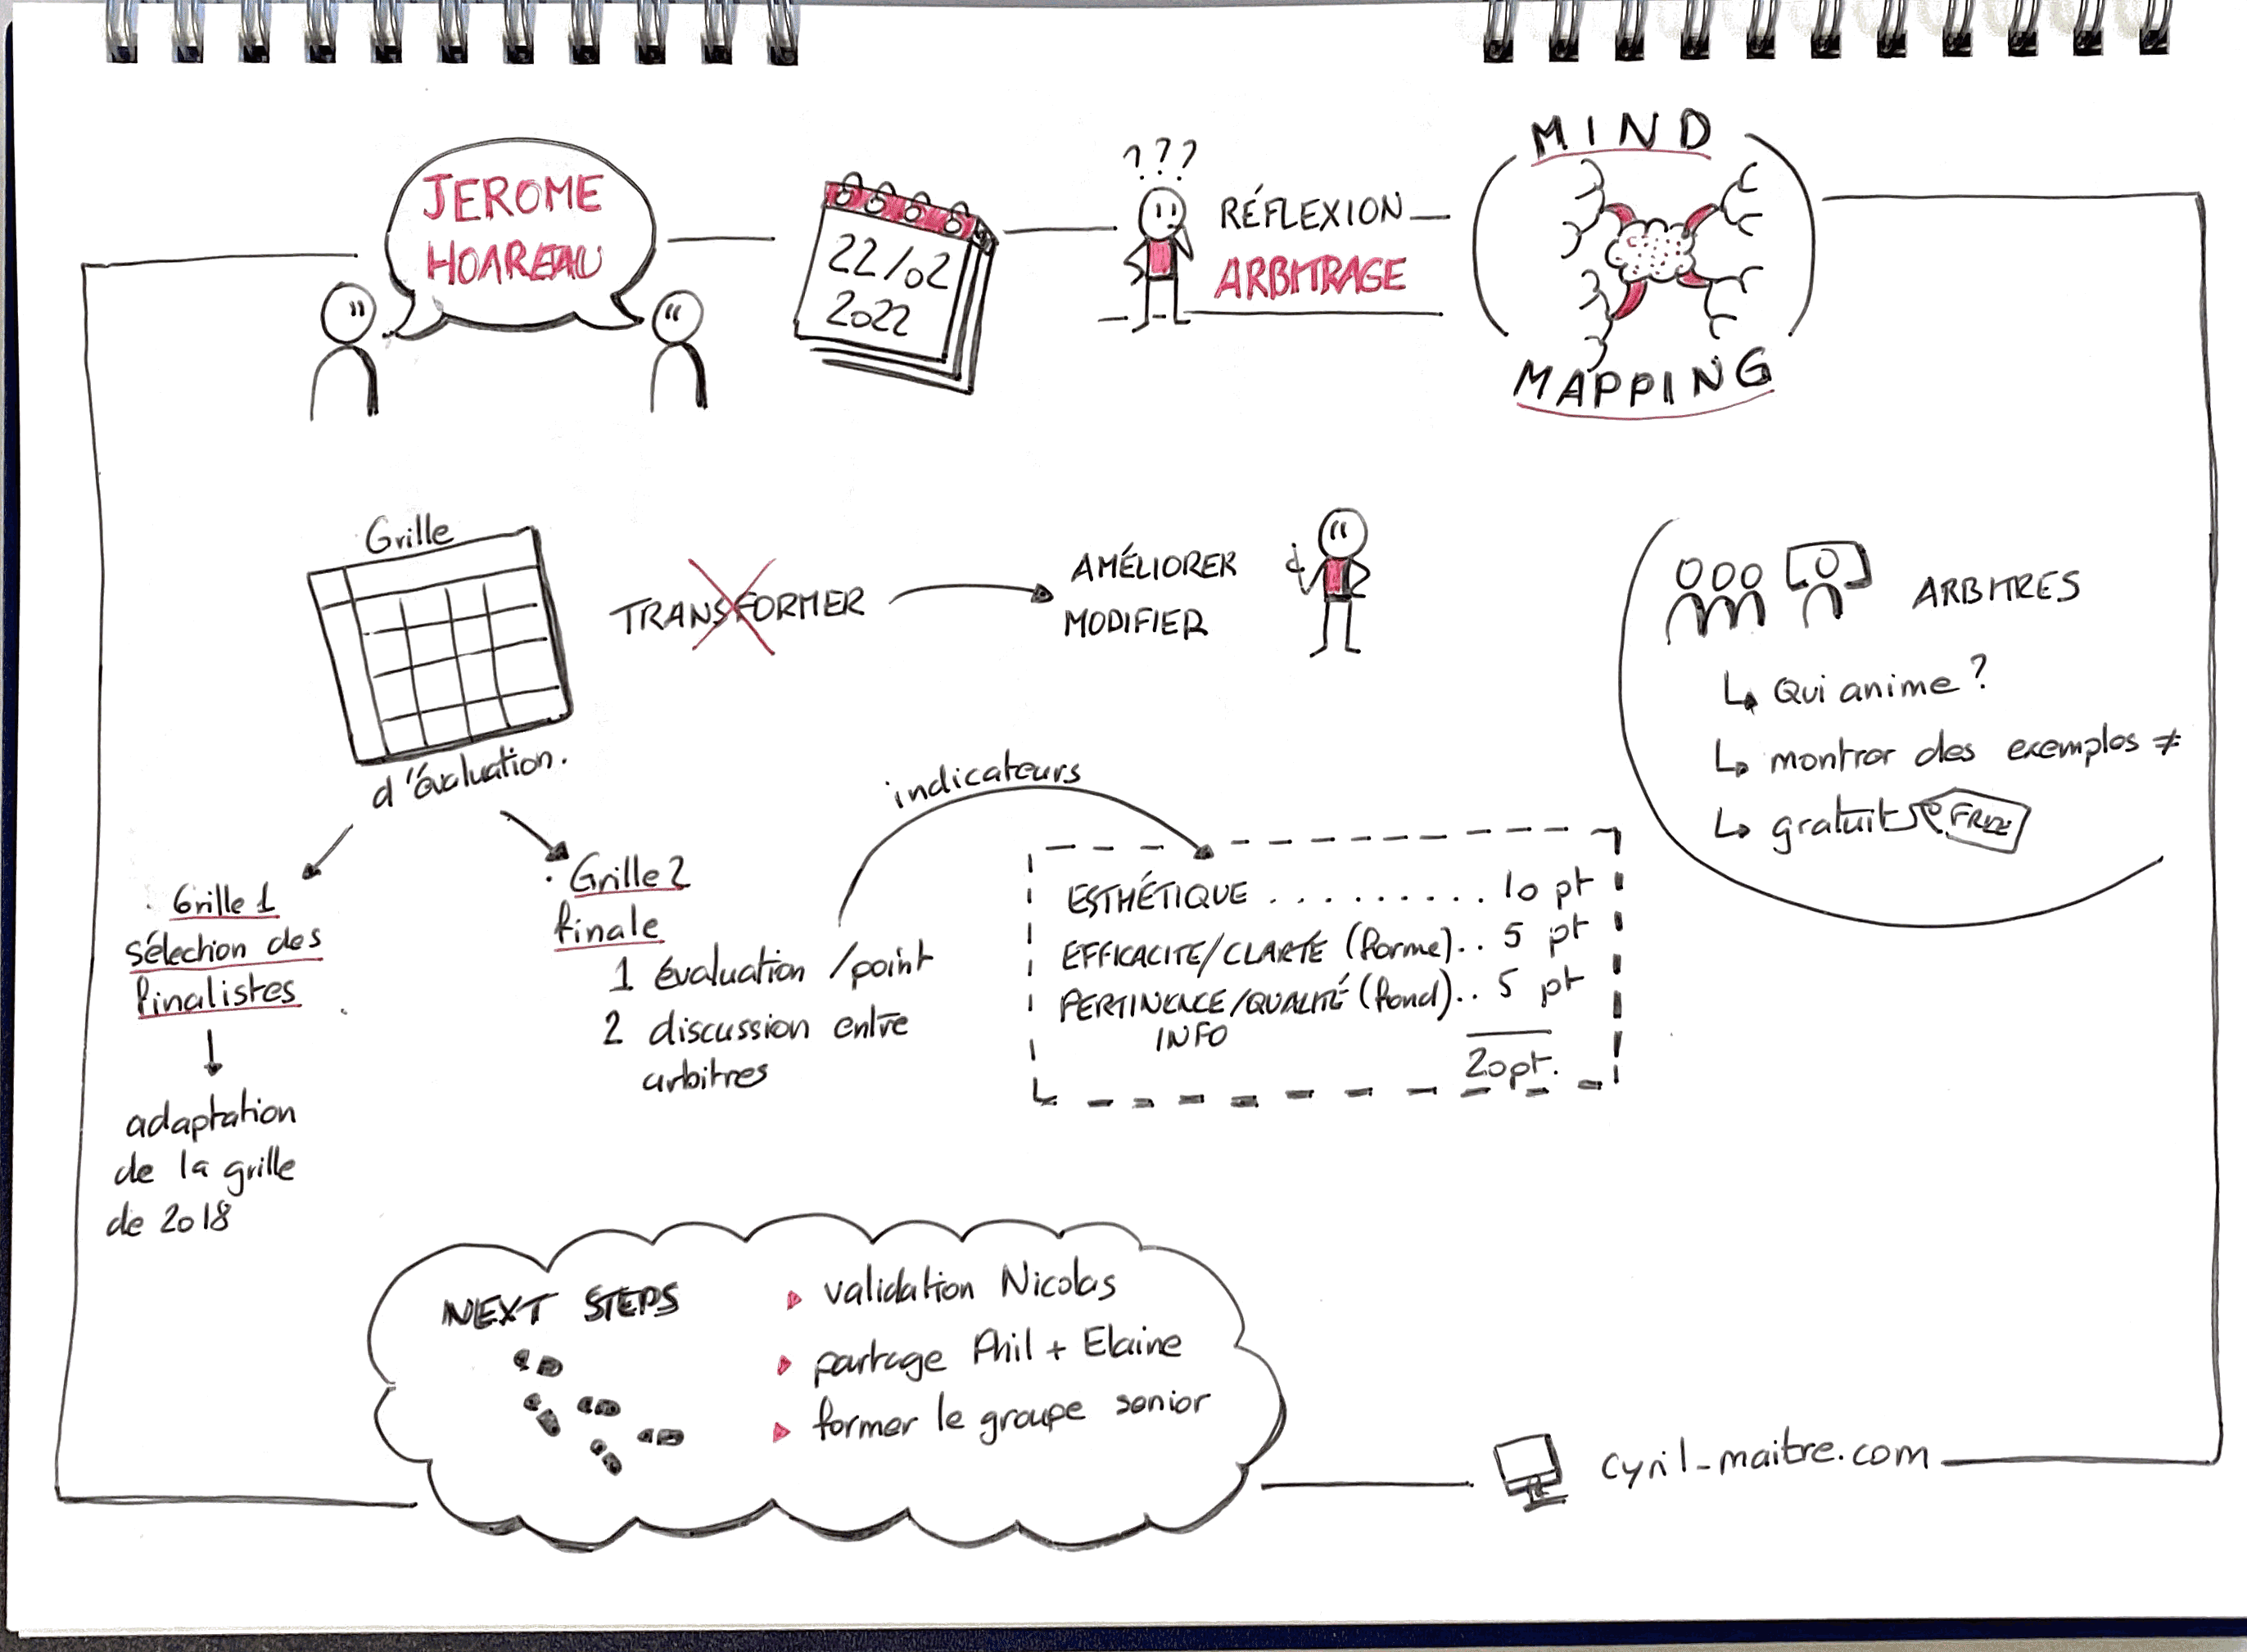 JEROME
HOAREAU
22/02
2022
???
RÉFLEXION
ARBITRAGE
MIND
MAPPING
Grille
d'évaluation.
TRANSFORMER
AMÉLIORER
MODIFIER
ARBITRES
↳ Qui anime ?
↳ montrer des exemples ≠
↳ gratuit FREE
Grille 1
sélection des
finalistes
adaptation
de la grille
de 2018
Grille 2
finale
1 évaluation / point
2 discussion entre
arbitres
indicateurs
ESTHÉTIQUE ......... 10 pt
EFFICACITE/CLARTÉ (forme).. 5 pt
PERTINENCE/QUALITÉ (fond).. 5 pt
INFO
20pt.
NEXT STEPS
validation Nicolas
partage Phil + Elaine
former le groupe senior
cyril-maitre.com